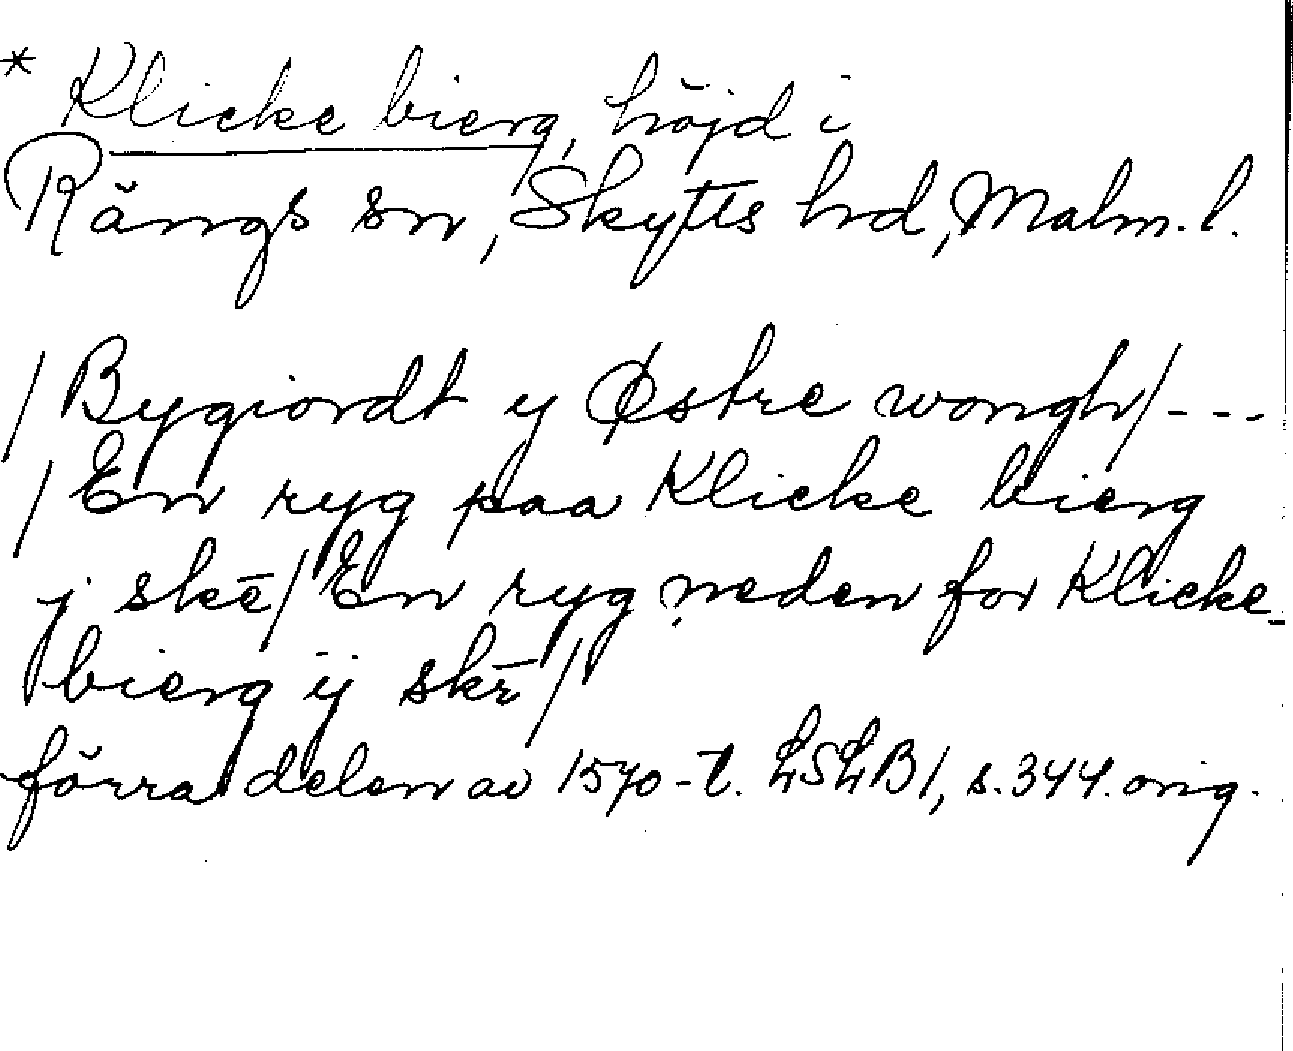 * Klicke bierg, höjd i
Rängs sn, Skytts hd, Malm. l.
/Bygiordt y Østre wongh/---
/En ryg paa Klicke bierg
j skē/En ryg neden for Klicke-
bierg ij skr̄/
förra delen av 1570-t. LSLB1, s.344. orig.